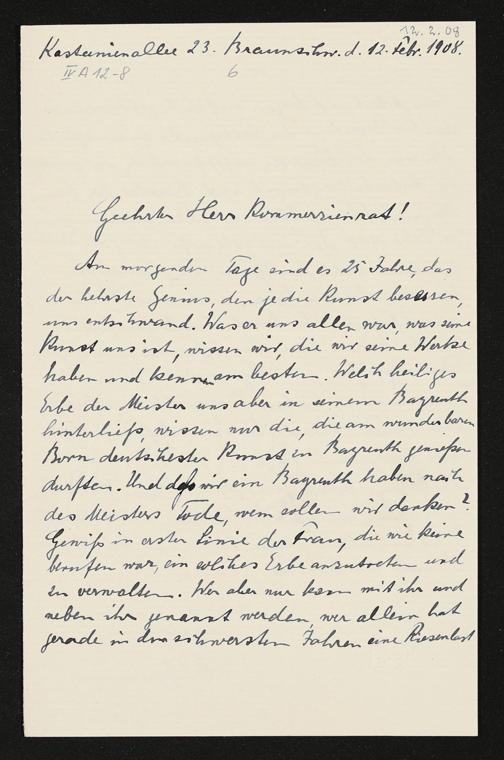 12.2.08
Kastanienallee 23. Braunschw. d. 12. Febr. 1908.
IV A 12-8 6
Geehrter Herr Kommerzienrat!
Am morgenden Tage sind es 25 Jahre, das
der hehrste Genius, den je die Kunst besessen,
uns entschwand. Was er uns allen war, was seine
Kunst uns ist, wissen wir, die wir seine Werke
haben und kennen am besten. Welch heiliges
Erbe der Meister uns aber in seinem Bayreuth
hinterließ, wissen nur die, die am wunderbaren
Born deutschester Kunst in Bayreuth genießen
durften. Und daß wir ein Bayreuth haben nach
des Meisters Tode, wem sollen wir danken?
Gewiß in erster Linie der Frau, die wie keine
berufen war, ein solches Erbe anzutreten und
zu verwalten. Wer aber nur kann mit ihr und
neben ihr genannt werden, wer allein hat
gerade in den schwersten Jahren eine Riesenlast